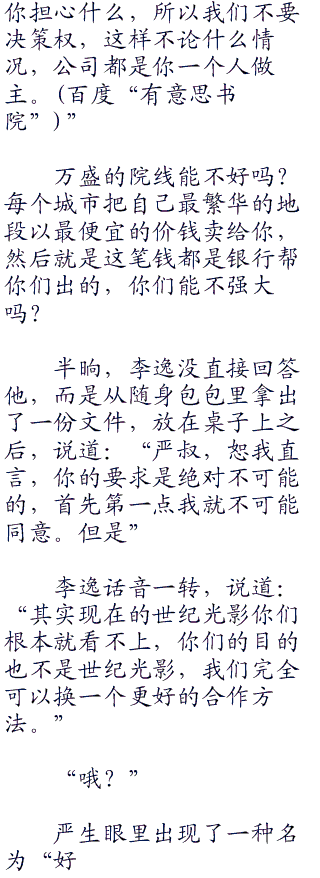 你担心什么，所以我们不要
决策权，这样不论什么情
况，公司都是你一个人做
主。(百度“有意思书
院”)”
万盛的院线能不好吗？
每个城市把自己最繁华的地
段以最便宜的价钱卖给你，
然后就是这笔钱都是银行帮
你们出的，你们能不强大
吗？
半晌，李逸没直接回答
他，而是从随身包包里拿出
了一份文件，放在桌子上之
后，说道：“严叔，恕我直
言，你的要求是绝对不可能
的，首先第一点我就不可能
同意。但是”
李逸话音一转，说道：
“其实现在的世纪光影你们
根本就看不上，你们的目的
也不是世纪光影，我们完全
可以换一个更好的合作方
法。”
“哦？”
严生眼里出现了一种名
为“好